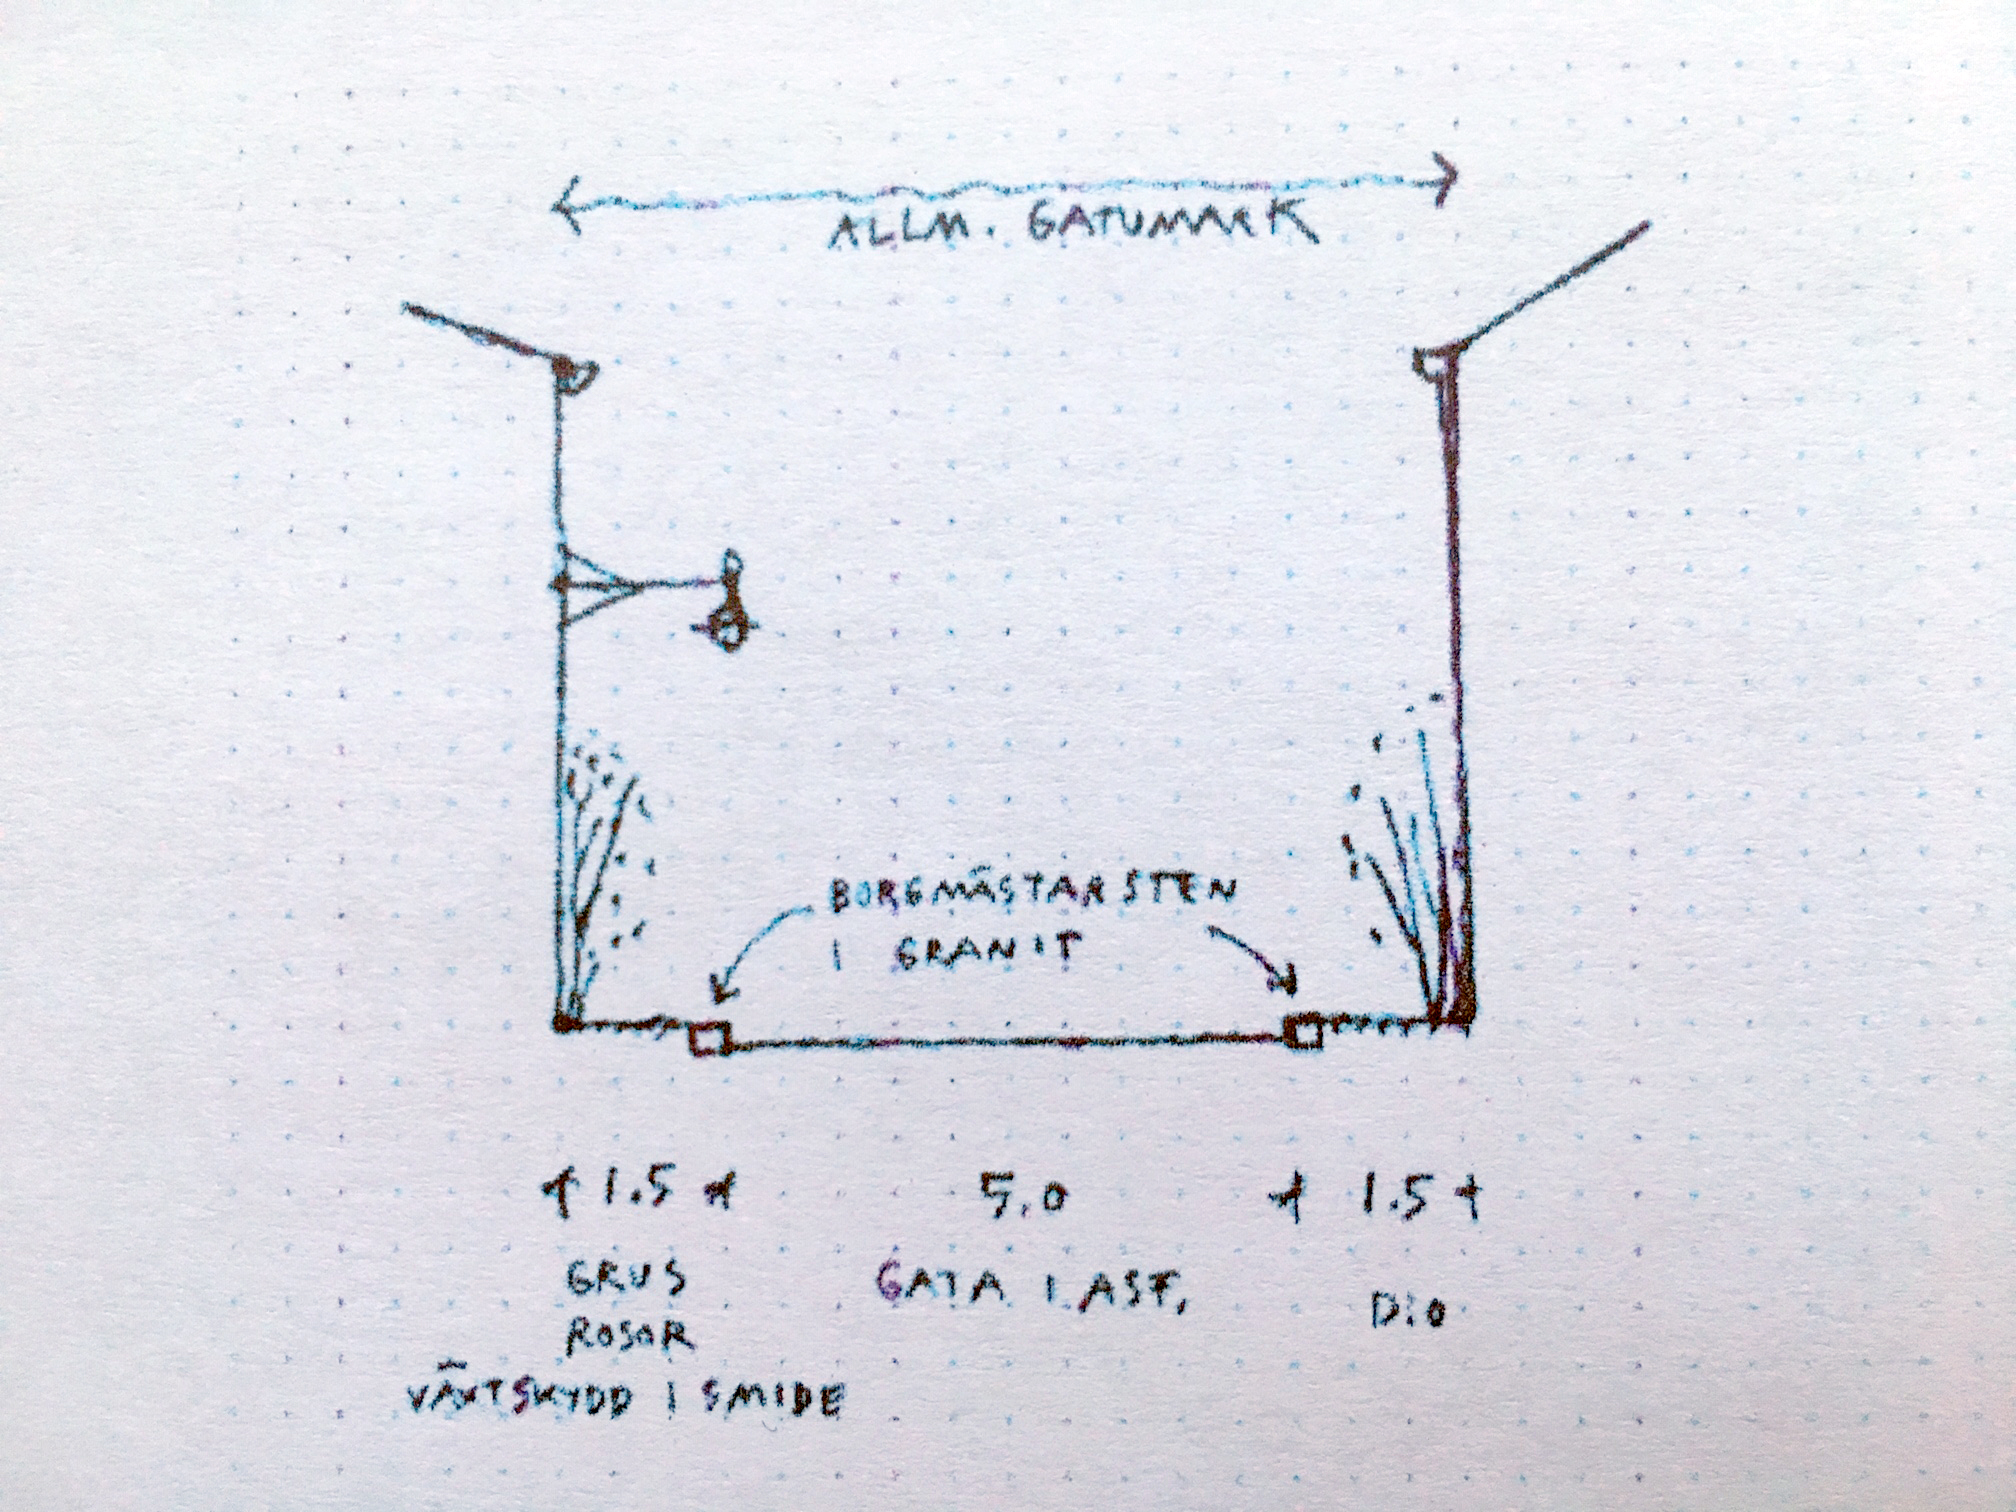 ALLM. GATUMARK
BORGMÄSTARSTEN
I GRANIT
1.5 5.0 1.5
GRUS
ROSOR
VÄXTSKYDD I SMIDE
GATA I ASF.
D:o